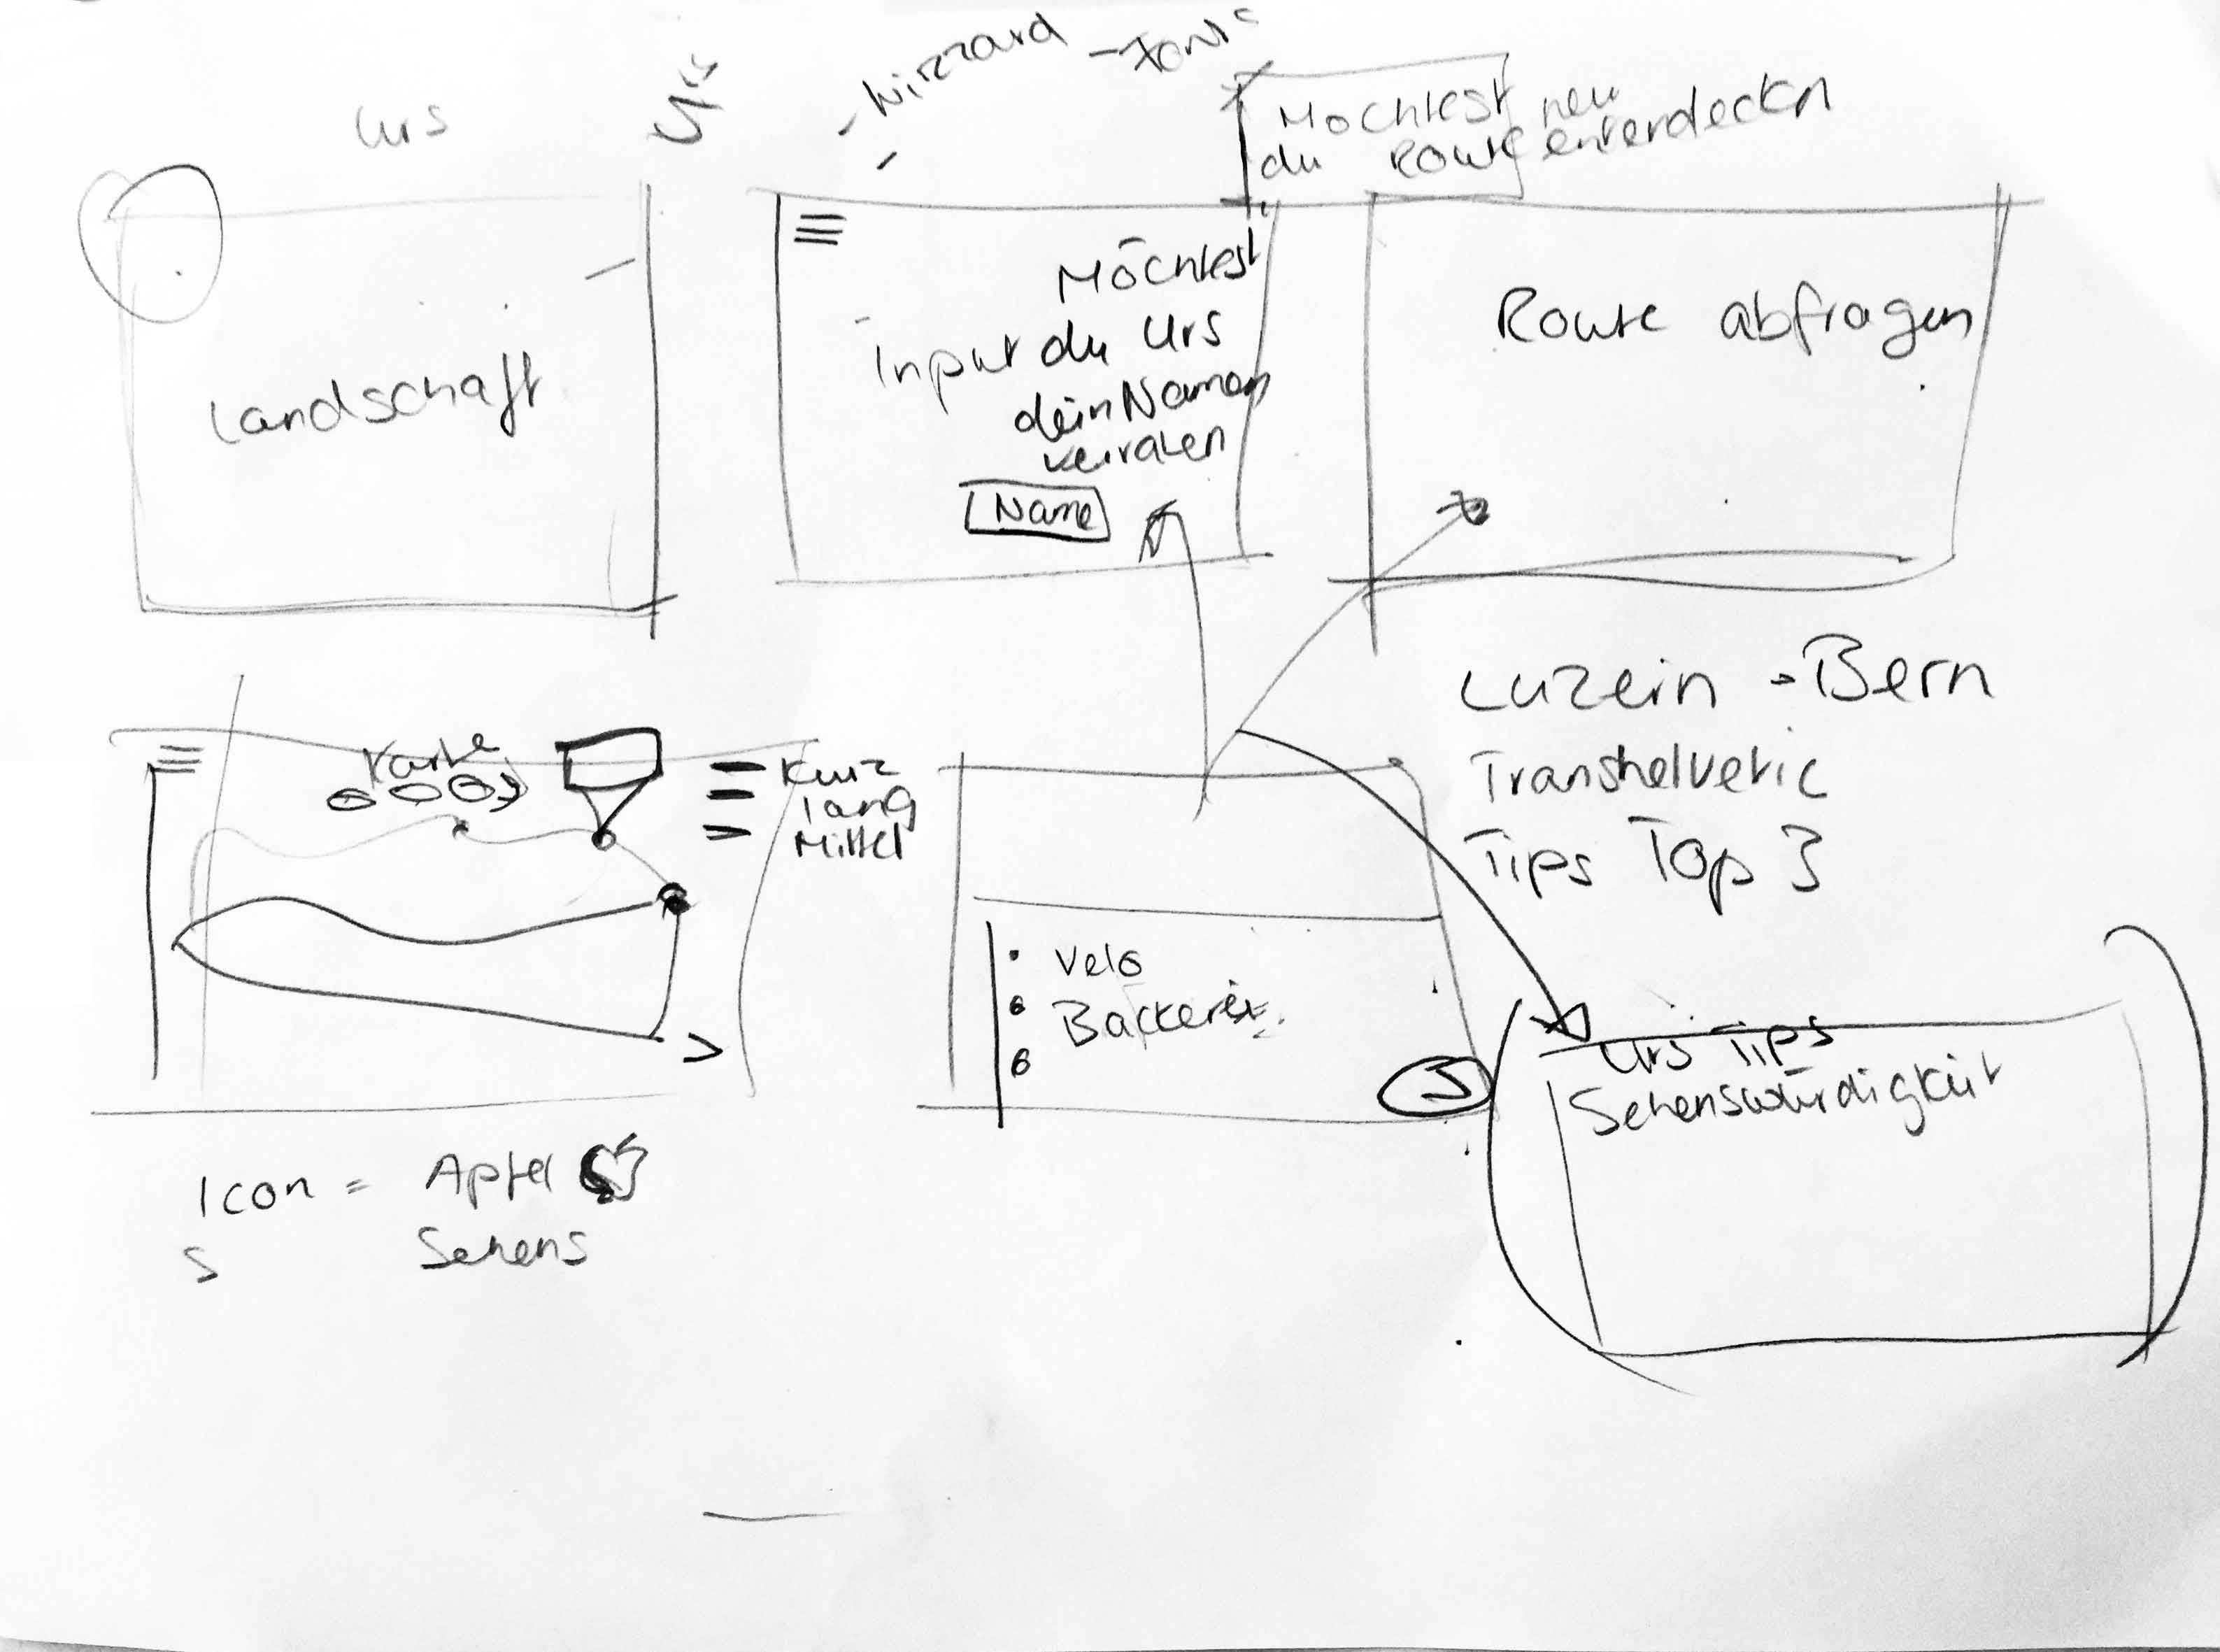 Urs
- Wizzard
Möchtest neu
du Route enterdeckn
Landschaft
Möchtest
Input du Urs
dein Namen
verraten
Name
Route abfragen
Luzein - Bern
Transhelvetic
Tips Top 3
Karte
Kurz
lang
Mittel
• Velo
• Bäckerei
•
Urs Tips
Sehenswürdigkeit
Icon = Apfel
S Sehens